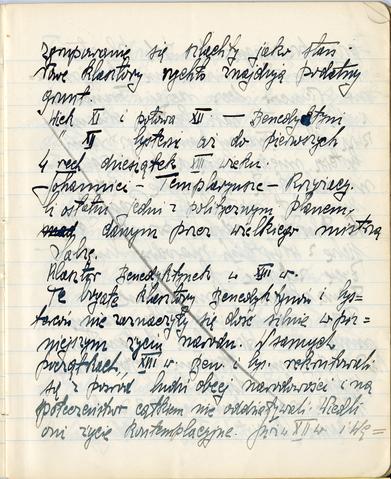 zgrupowanie się szlachty jako stan.
Nowe klasztory rychło znajdują podatny
grunt.
Wiek XI i połowa XII. — Benedyktyni
" XII Cystersi aż do pierwszych
4 dziesiątek XIII wieku.
Johannici — Templaryusze — Krzyżacy.
Ci ostatni jedni z politycznym planem,
danym przez wielkiego mistrza
Salzę.
Klasztor Benedyktynek w XIII w.
Te liczne klasztory Benedyktynów i Cys-
tersów nie zaznaczyły się dość silnie w póź-
niejszym życiu narodu. W samych
początkach, XIII w Ben. i Cys. rekrutowali
się z pośród ludzi obcej narodowości i na
społeczeństwo całkiem nie oddziaływali. Wiedli
oni życie kontemplacyjne. Już w XII w i